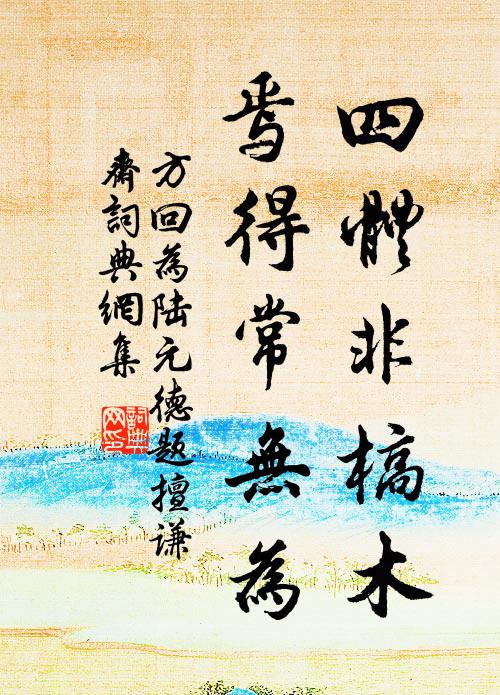 四體非槁木
焉得常無為
方回為陸元德題擅謙
齋詞典網集
詞典網印